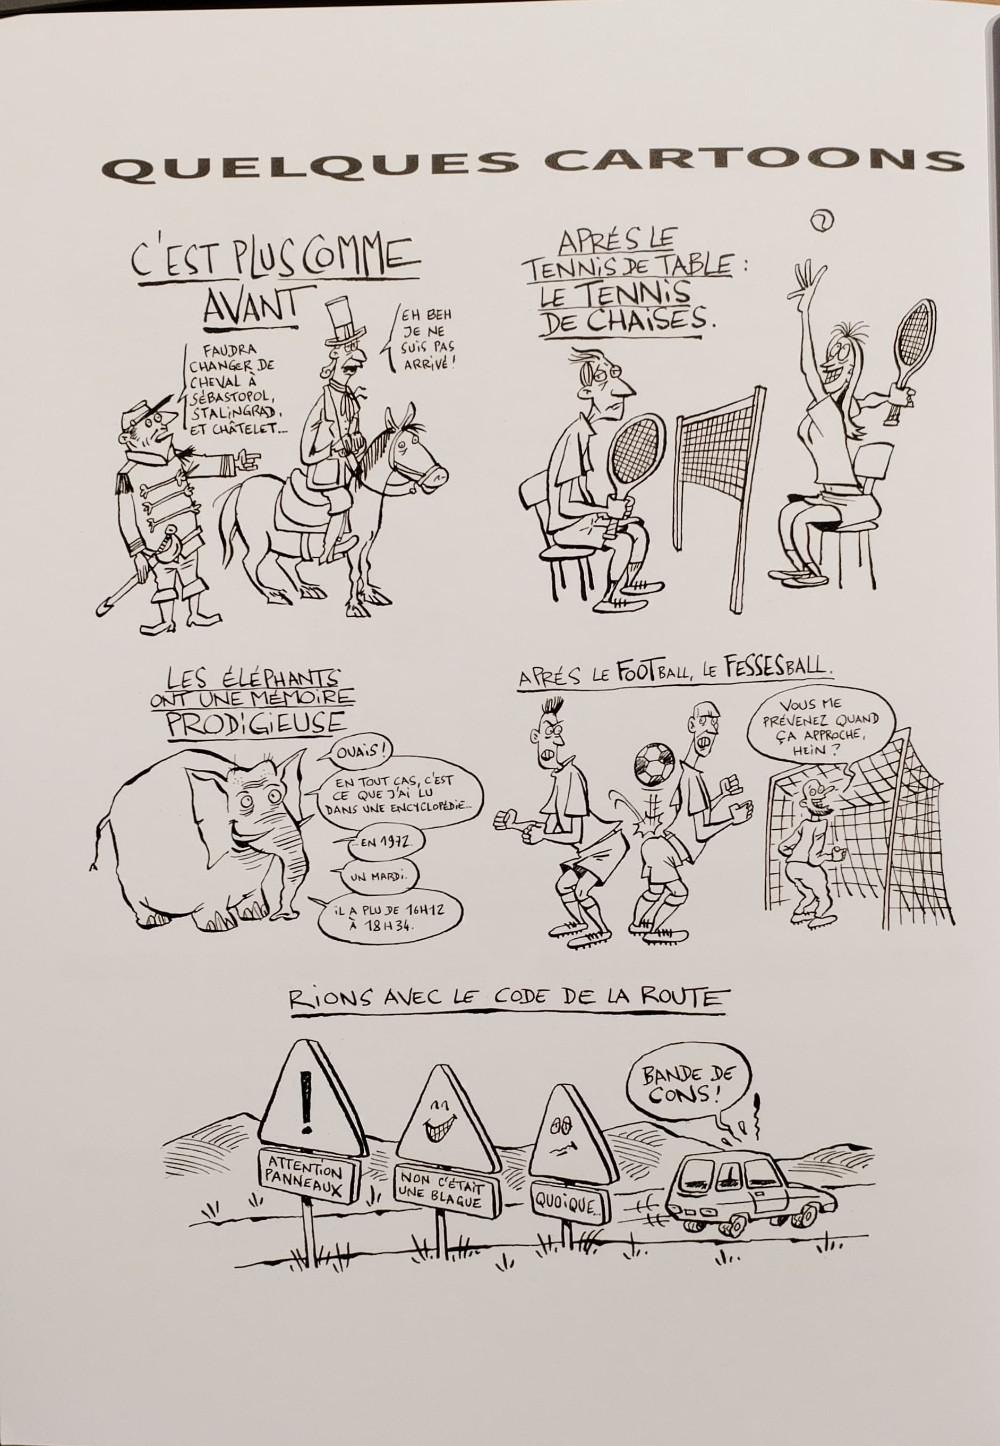 QUELQUES CARTOONS
C'EST PLUS COMME
AVANT
FAUDRA
CHANGER DE
CHEVAL À
SÉBASTOPOL,
STALINGRAD,
ET CHÂTELET...
EH BEH
JE NE
SUIS PAS
ARRIVÉ !
APRÉS LE
TENNIS DE TABLE :
LE TENNIS
DE CHAISES.
LES ÉLÉPHANTS
ONT UNE MÉMOIRE
PRODIGIEUSE
OUAIS !
EN TOUT CAS, C'EST
CE QUE J'AI LU
DANS UNE ENCYCLOPÉDIE...
EN 1972.
UN MARDI.
IL A PLU DE 16H12
À 18H34.
APRÉS LE FOOTBALL, LE FESSESBALL.
VOUS ME
PRÉVENEZ QUAND
ÇA APPROCHE,
HEIN ?
RIONS AVEC LE CODE DE LA ROUTE
!
ATTENTION
PANNEAUX
NON C'ÉTAIT
UNE BLAGUE
QUOIQUE...
BANDE DE
CONS !